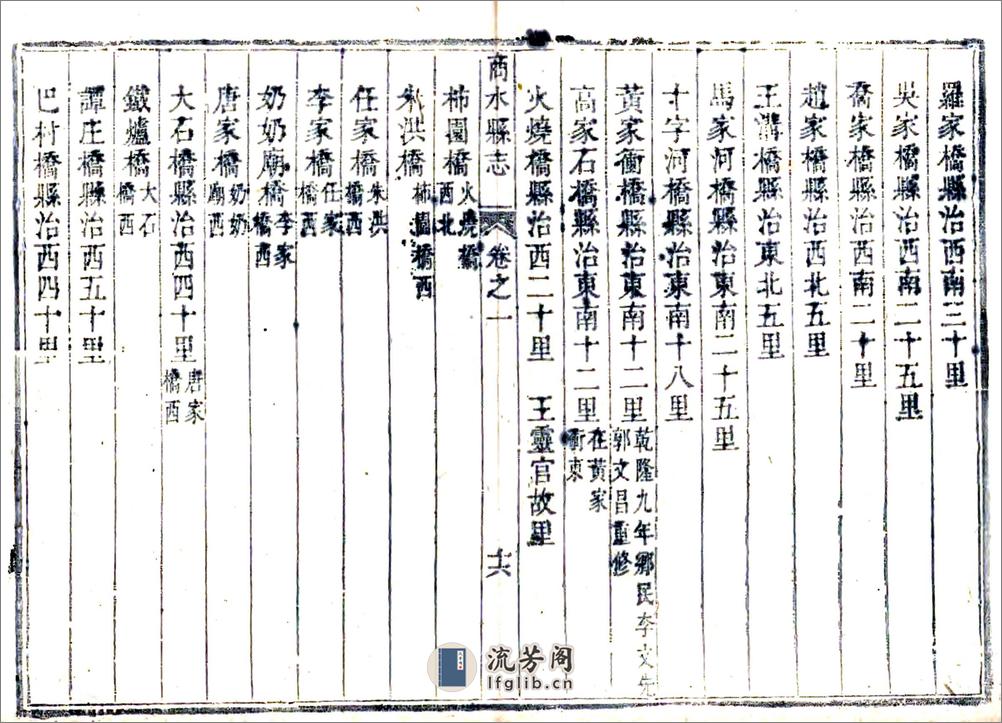 羅家橋縣治西南三十里
吳家橋縣治西南二十五里
喬家橋縣治西南二十里
趙家橋縣治西北五里
王溝橋縣治東北五里
馬家河橋縣治東南二十五里
十字河橋縣治東南十八里
黃家衝橋縣治東南十二里乾隆九年鄉民李文先郭文昌重修
高家石橋縣治東南十二里在黃家衝東
火燒橋縣治西二十里 王靈官故里
商水縣志 卷之一 十六
柿園橋火燒橋西北
朱洪橋柿園橋西
任家橋朱洪橋西
李家橋任家橋西
奶奶廟橋李家橋西
唐家橋奶奶廟西
大石橋縣治西四十里唐家橋西
鐵爐橋大石橋西
譚庄橋縣治西五十里
巴村橋縣治西四十里
流芳阁
lfglib.cn